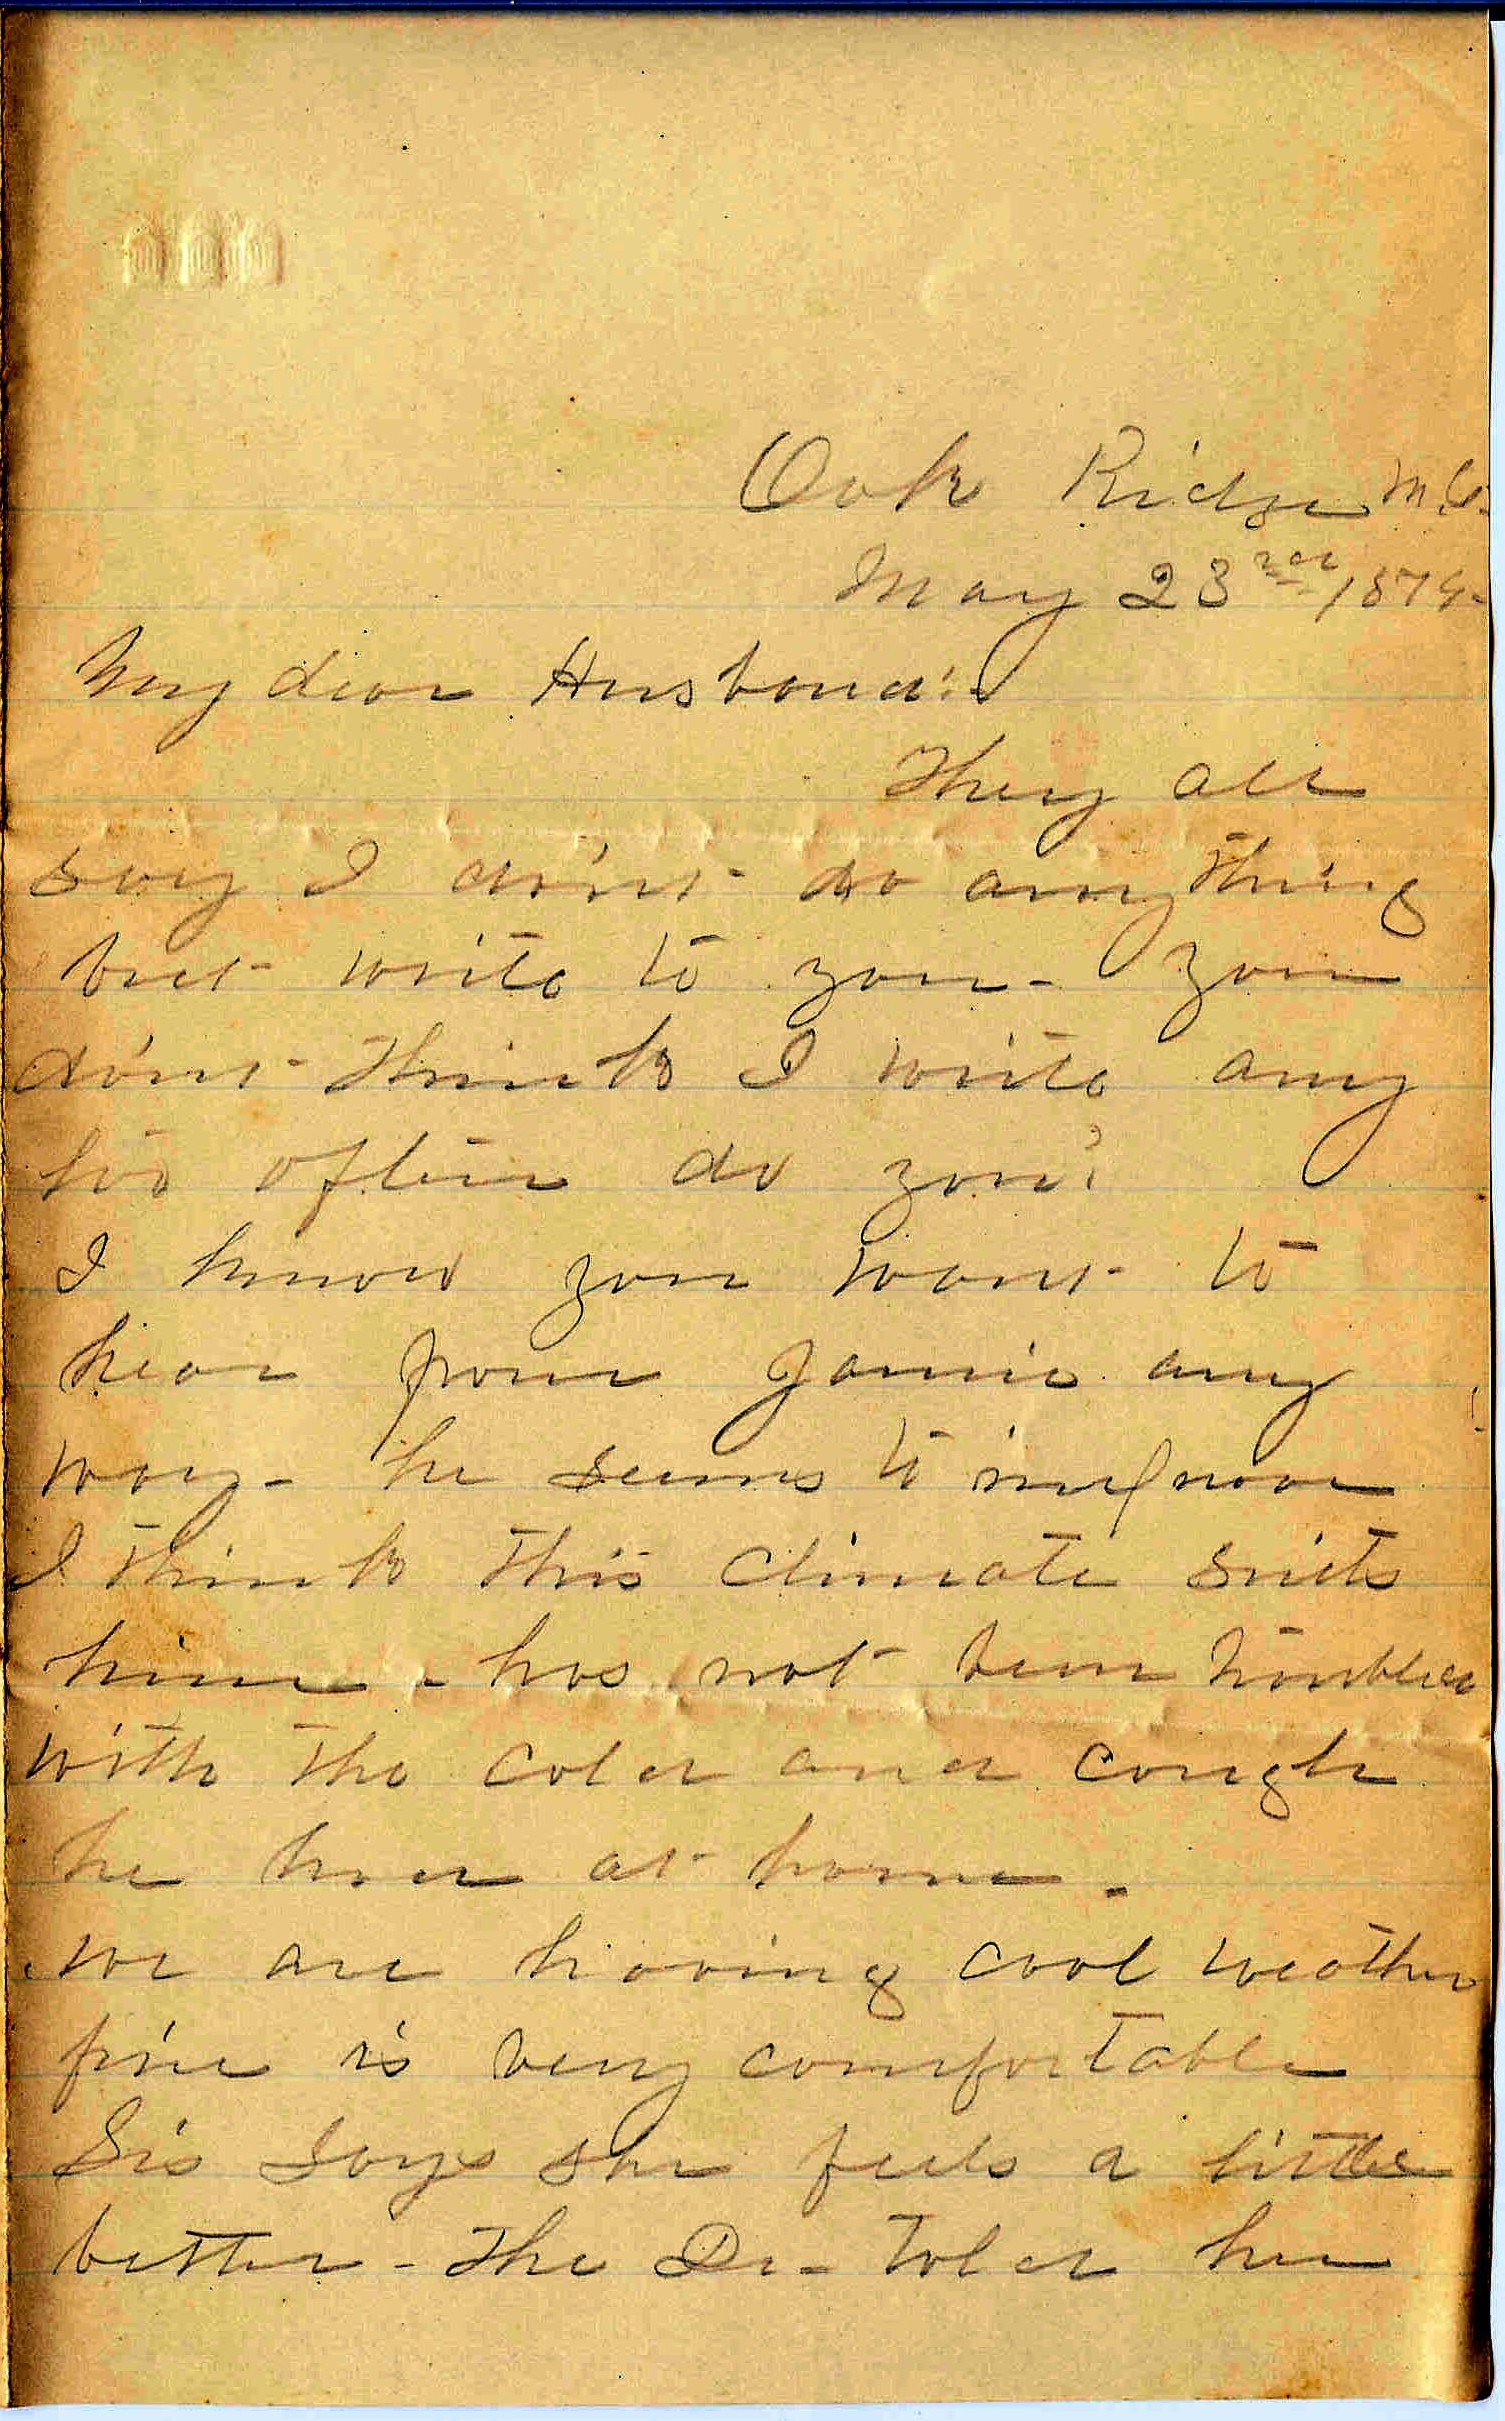 Oak Ridge N.C.
May 23rd 1879-
My dear Husband:
They all
say I do'nt do any thing
but write to you - You
do'nt think I write any
too often do you?
I know you want to
hear from Jamie any
way - he seems to improve
I think this climate suits
him - has not been troubled
with the cold and cough
he had at home.
We are having cool weather
fire is very comfortable
Sis says she feels a little
better - The Dr- told her